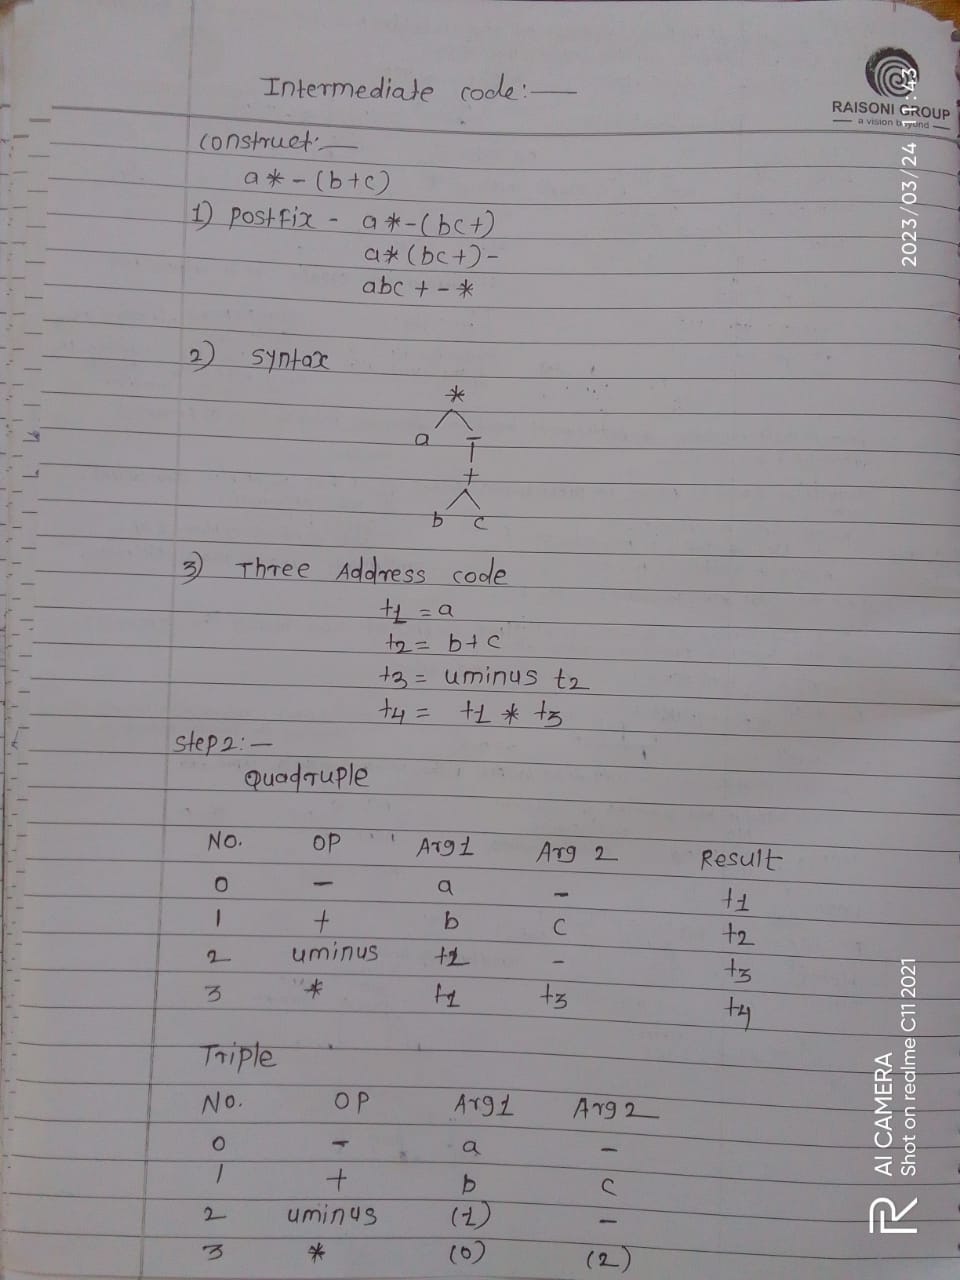 Intermediate code:—
RAISONI GROUP
— a vision beyond —
2023/03/24 11:43
construct:—
a * - (b+c)
1) Postfix - a*-(bc+)
a*(bc+)-
abc + - *
2) Syntax
*
a -
+
b c
3) Three Address code
t1 = a
t2 = b+c
t3 = uminus t2
t4 = t1 * t3
Step2:—
Quadruple
NO. OP Arg1 Arg 2 Result
0 - a - t1
1 + b c t2
2 uminus t2 - t3
3 * t1 t3 t4
Triple
NO. OP Arg1 Arg2
0 - a -
1 + b c
2 uminus (1) -
3 * (0) (2)
AI CAMERA
Shot on realme C11 2021